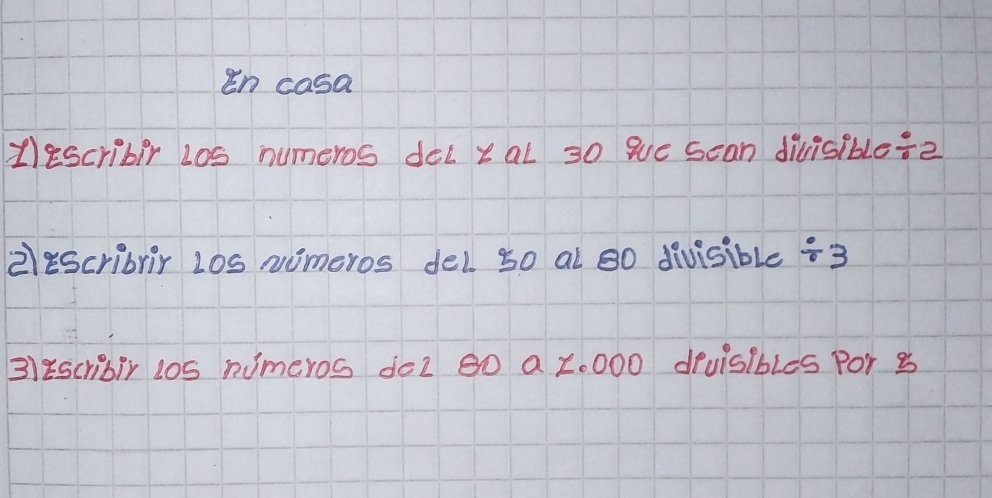 En casa
1) Escribir Los numeros del 1 al 30 que sean divisible ÷ 2
2) Escribrir Los números del 50 al 80 divisible ÷ 3
3) Escribir los números del 80 a 1.000 divisibles Por 5